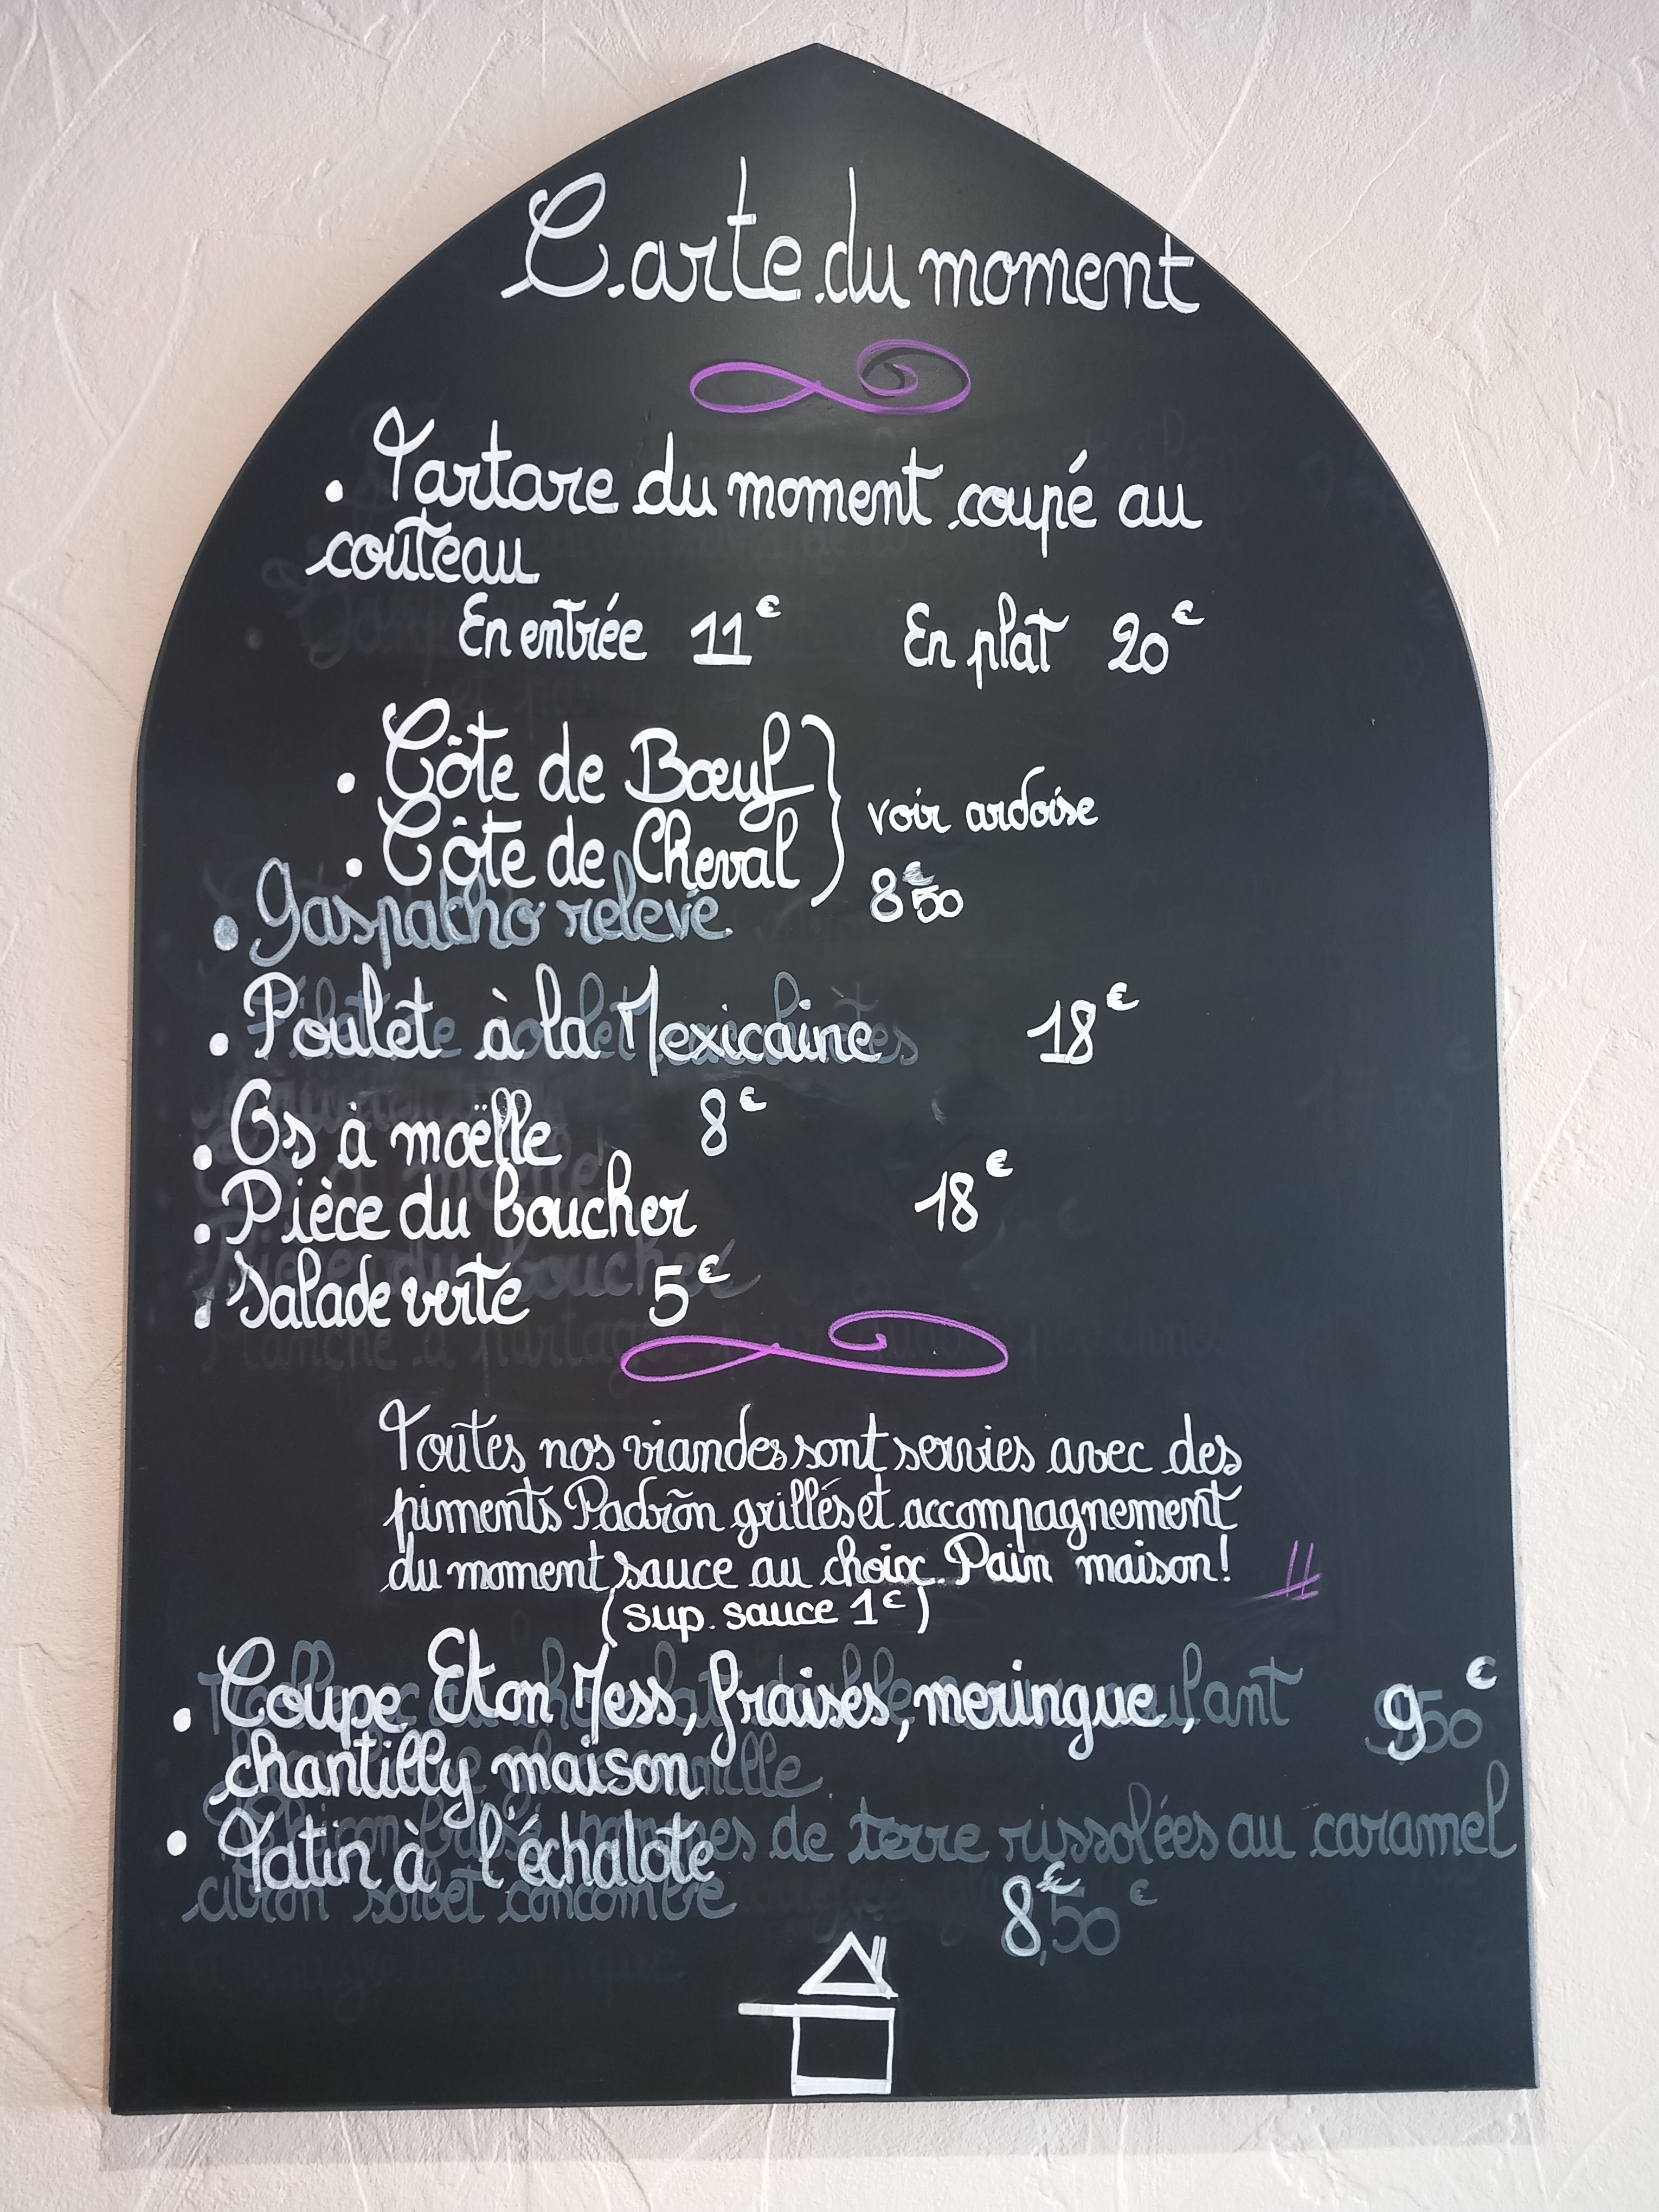 Carte du moment
• Tartare du moment coupé au
couteau
En entrée 11€ En plat 20€
• Côte de Bœuf
voir ardoise
• Côte de Cheval
• Gaspatcho relevé 8€50
• Poulet à la Mexicaine 18€
• Os à moëlle 8€
• Pièce du boucher 18€
• Salade verte 5€
Toutes nos viandes sont servies avec des
piments Padrõn grillés et accompagnement
du moment, sauce au choix. Pain maison!
(sup. sauce 1€)
• Coupe Eton Mess, fraises, meringue, 9€
chantilly maison
• Tatin à l'échalote
8€